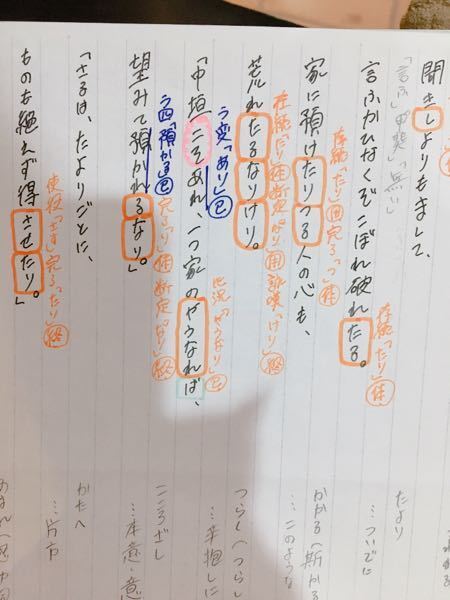 聞きしよりもまして、
「言ふ」
「無し」
言ふかひなくぞこぼれ破れたる。
存続「たり」体
家に預けたりつる人の心も、
存続「たり」用 完了「つ」体
荒れたるなりけり。
存続「たり」体 断定「なり」用 詠嘆「けり」終
「中垣こそあれ、一つ家のやうなれば、
ラ変「あり」已
比況「やうなり」已
望みて預かれるなり。」
ラ四「預かる」已 完了「り」体 断定「なり」終
「さるは、たよりごとに、
ものも絶えず得させたり。」
使役「さす」 完了「たり」終
たより
…ついでに
かかる「斯かる
…このような
つらし〈つらし
…辛抱しに
こころざし
…本意・意
かたへ
…片方